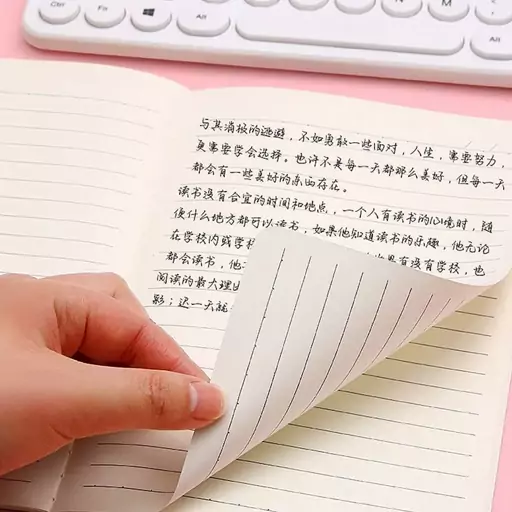 Ctrl
Fn
Alt
Alt
M
与其消极的逃避，不如勇敢一些面对，人生，需要努力，
更需要学会选择。也许不是每一天都那么美好，但每一天
都会有一些美好的东西存在。
读书没有合宜的时间和地点，一个人有读书的心境时，随
便什么地方都可以读书，如果他知道读书的乐趣，他无论
在学校内或学校 有没有学校，也
都会读书，他
阅读的最大理由
影；迟一天就